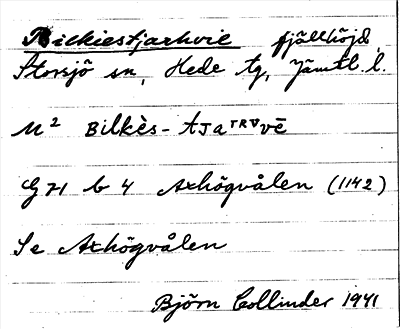 Bilkiestjachvie fjällhöjd
Storsjö sn, Hede tg, Jämtl. l.
M² Bilkès-tjaTRVvē
G 71 b 4 Axhögvålen (1142)
Se Axhögvålen
Björn Collinder 1941